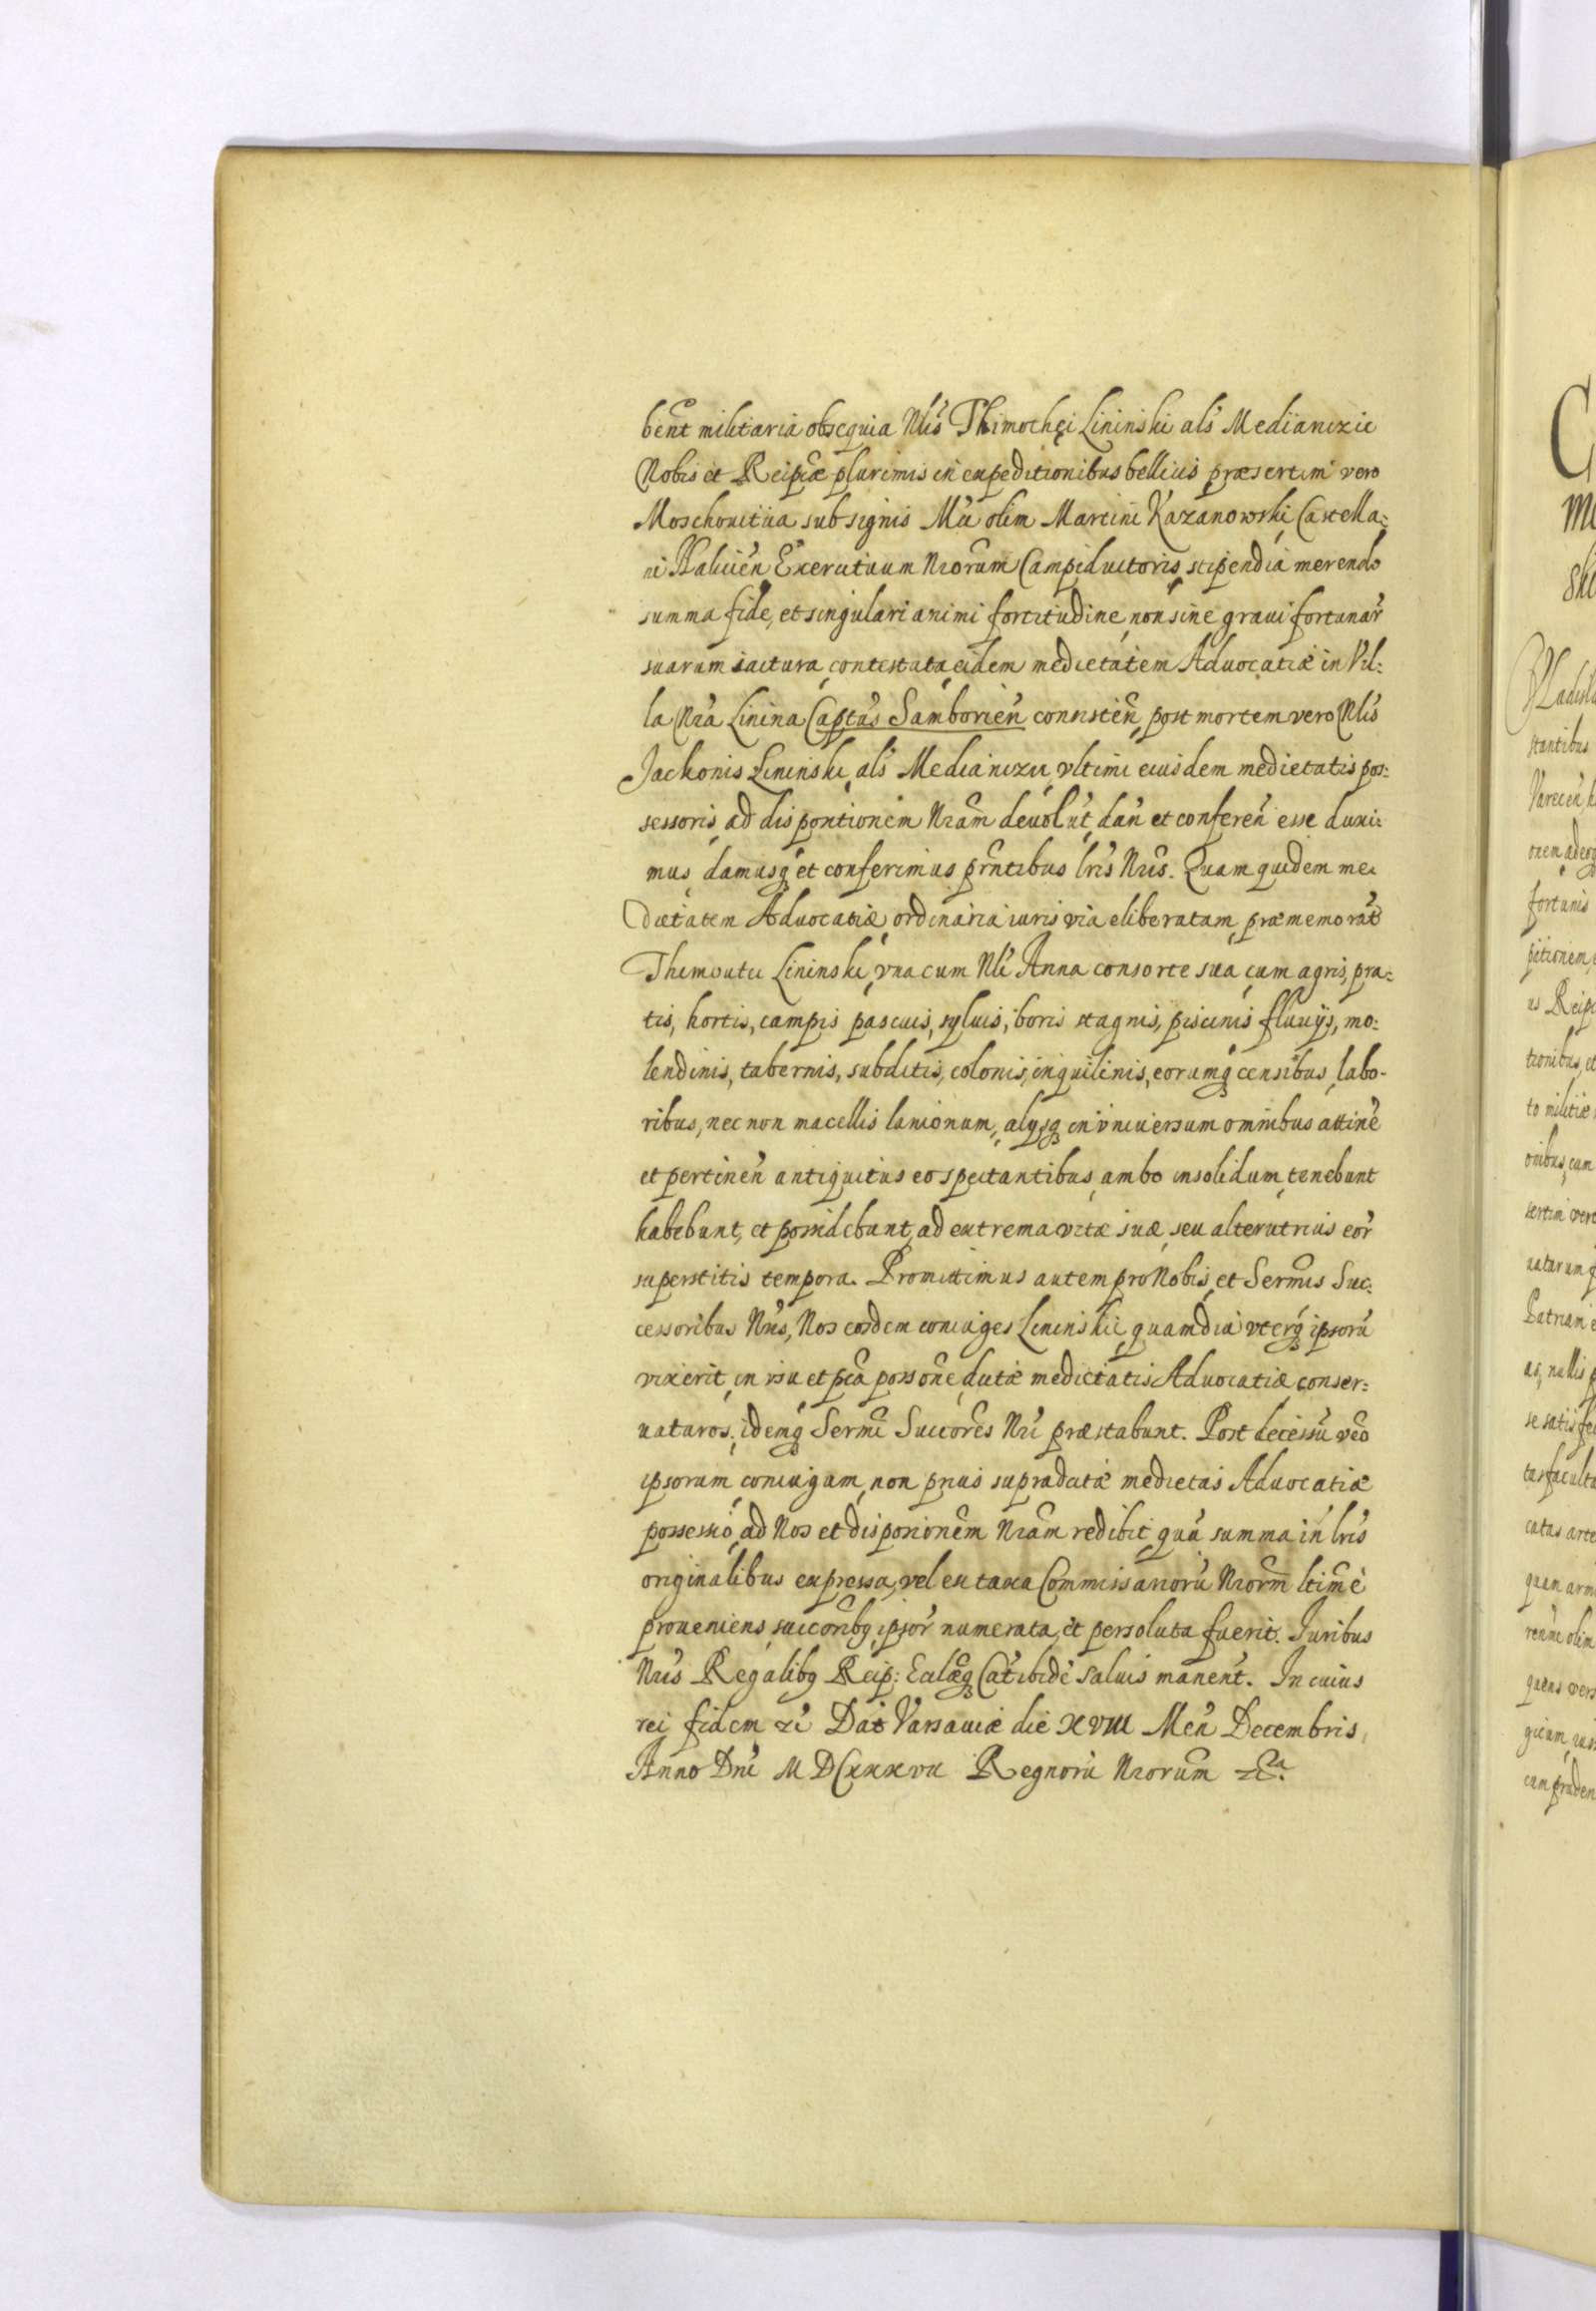 bent militaria obsequia Nlis Thimothęi Lininski als Medianizic
Nobis et Reipcæ plurimis in expeditionibus bellicis præsertim vero
Moschouitica sub signis Mci olim Martini Kazanowski Castella:
ni Halicien Exercituum Nrorum Campiductoris stipendia merendo
summa fide, et singulari animi fortitudine, non sine graui fortunar
suarum iactura, contestata, eidem medietatem Aduocatiæ in Vil:
la Nra Linina Captus Samborien consisten, post mortem vero Nlis
Jackonis Lininski, als Medianizic, vltimi eiusdem medietatis pos:
sessoris, ad dispositionem Nram deuolut, dan et conferen esse duxi:
mus, damusq et conferimus prntibus lris Nris. Quam quidem me:
dietatem Aduocatiæ, ordinaria iuris via eliberatam, præmemorat
Thimoutei Lininski, vna cum Nli Anna consorte sua, cum agris, pra:
tis, hortis, campis pascuis, syluis, boris stagnis, piscinis fluuijs, mo:
lendinis, tabernis, subditis, colonis, inquilinis, eorumq censibus, labo-
ribus, nec non macellis lanionum, alysq in vniuersum omnibus attine
et pertinen antiquitus eo spectantibus, ambo insolidum, tenebunt
habebunt, et possidebunt, ad extrema vitæ suæ, seu alterutrius eor
superstitis tempora. Promittimus autem pro Nobis, et Sermis Suc:
cessoribus Nris, Nos eosdem coniuges Lininskie, quamdiu vterq ipsoru
vixerit, in vsu et pca possone, dictæ medietatis Aduocatiæ conser:
uaturos, idemq Sermi Succores Nri præstabunt. Post decessu vero
ipsorum coniugum, non prius supradictæ medietais Aduocatiæ
possessio, ad Nos et disposionem Nram redibit, qua summa in lris
originalibus expressa, vel ex taxa Commissarioru Nrorm ltime
proueniens, succoribq ipsor numerata, et persoluta fuerit. Juribus
Nris Regalibq Reip: Eclæq Catibide saluis manent. In cuius
rei fidem zc Dat Varsauiæ die XVIII Men Decembris,
Anno Dni MDCXXXVII Regnoru Nrorum zc.